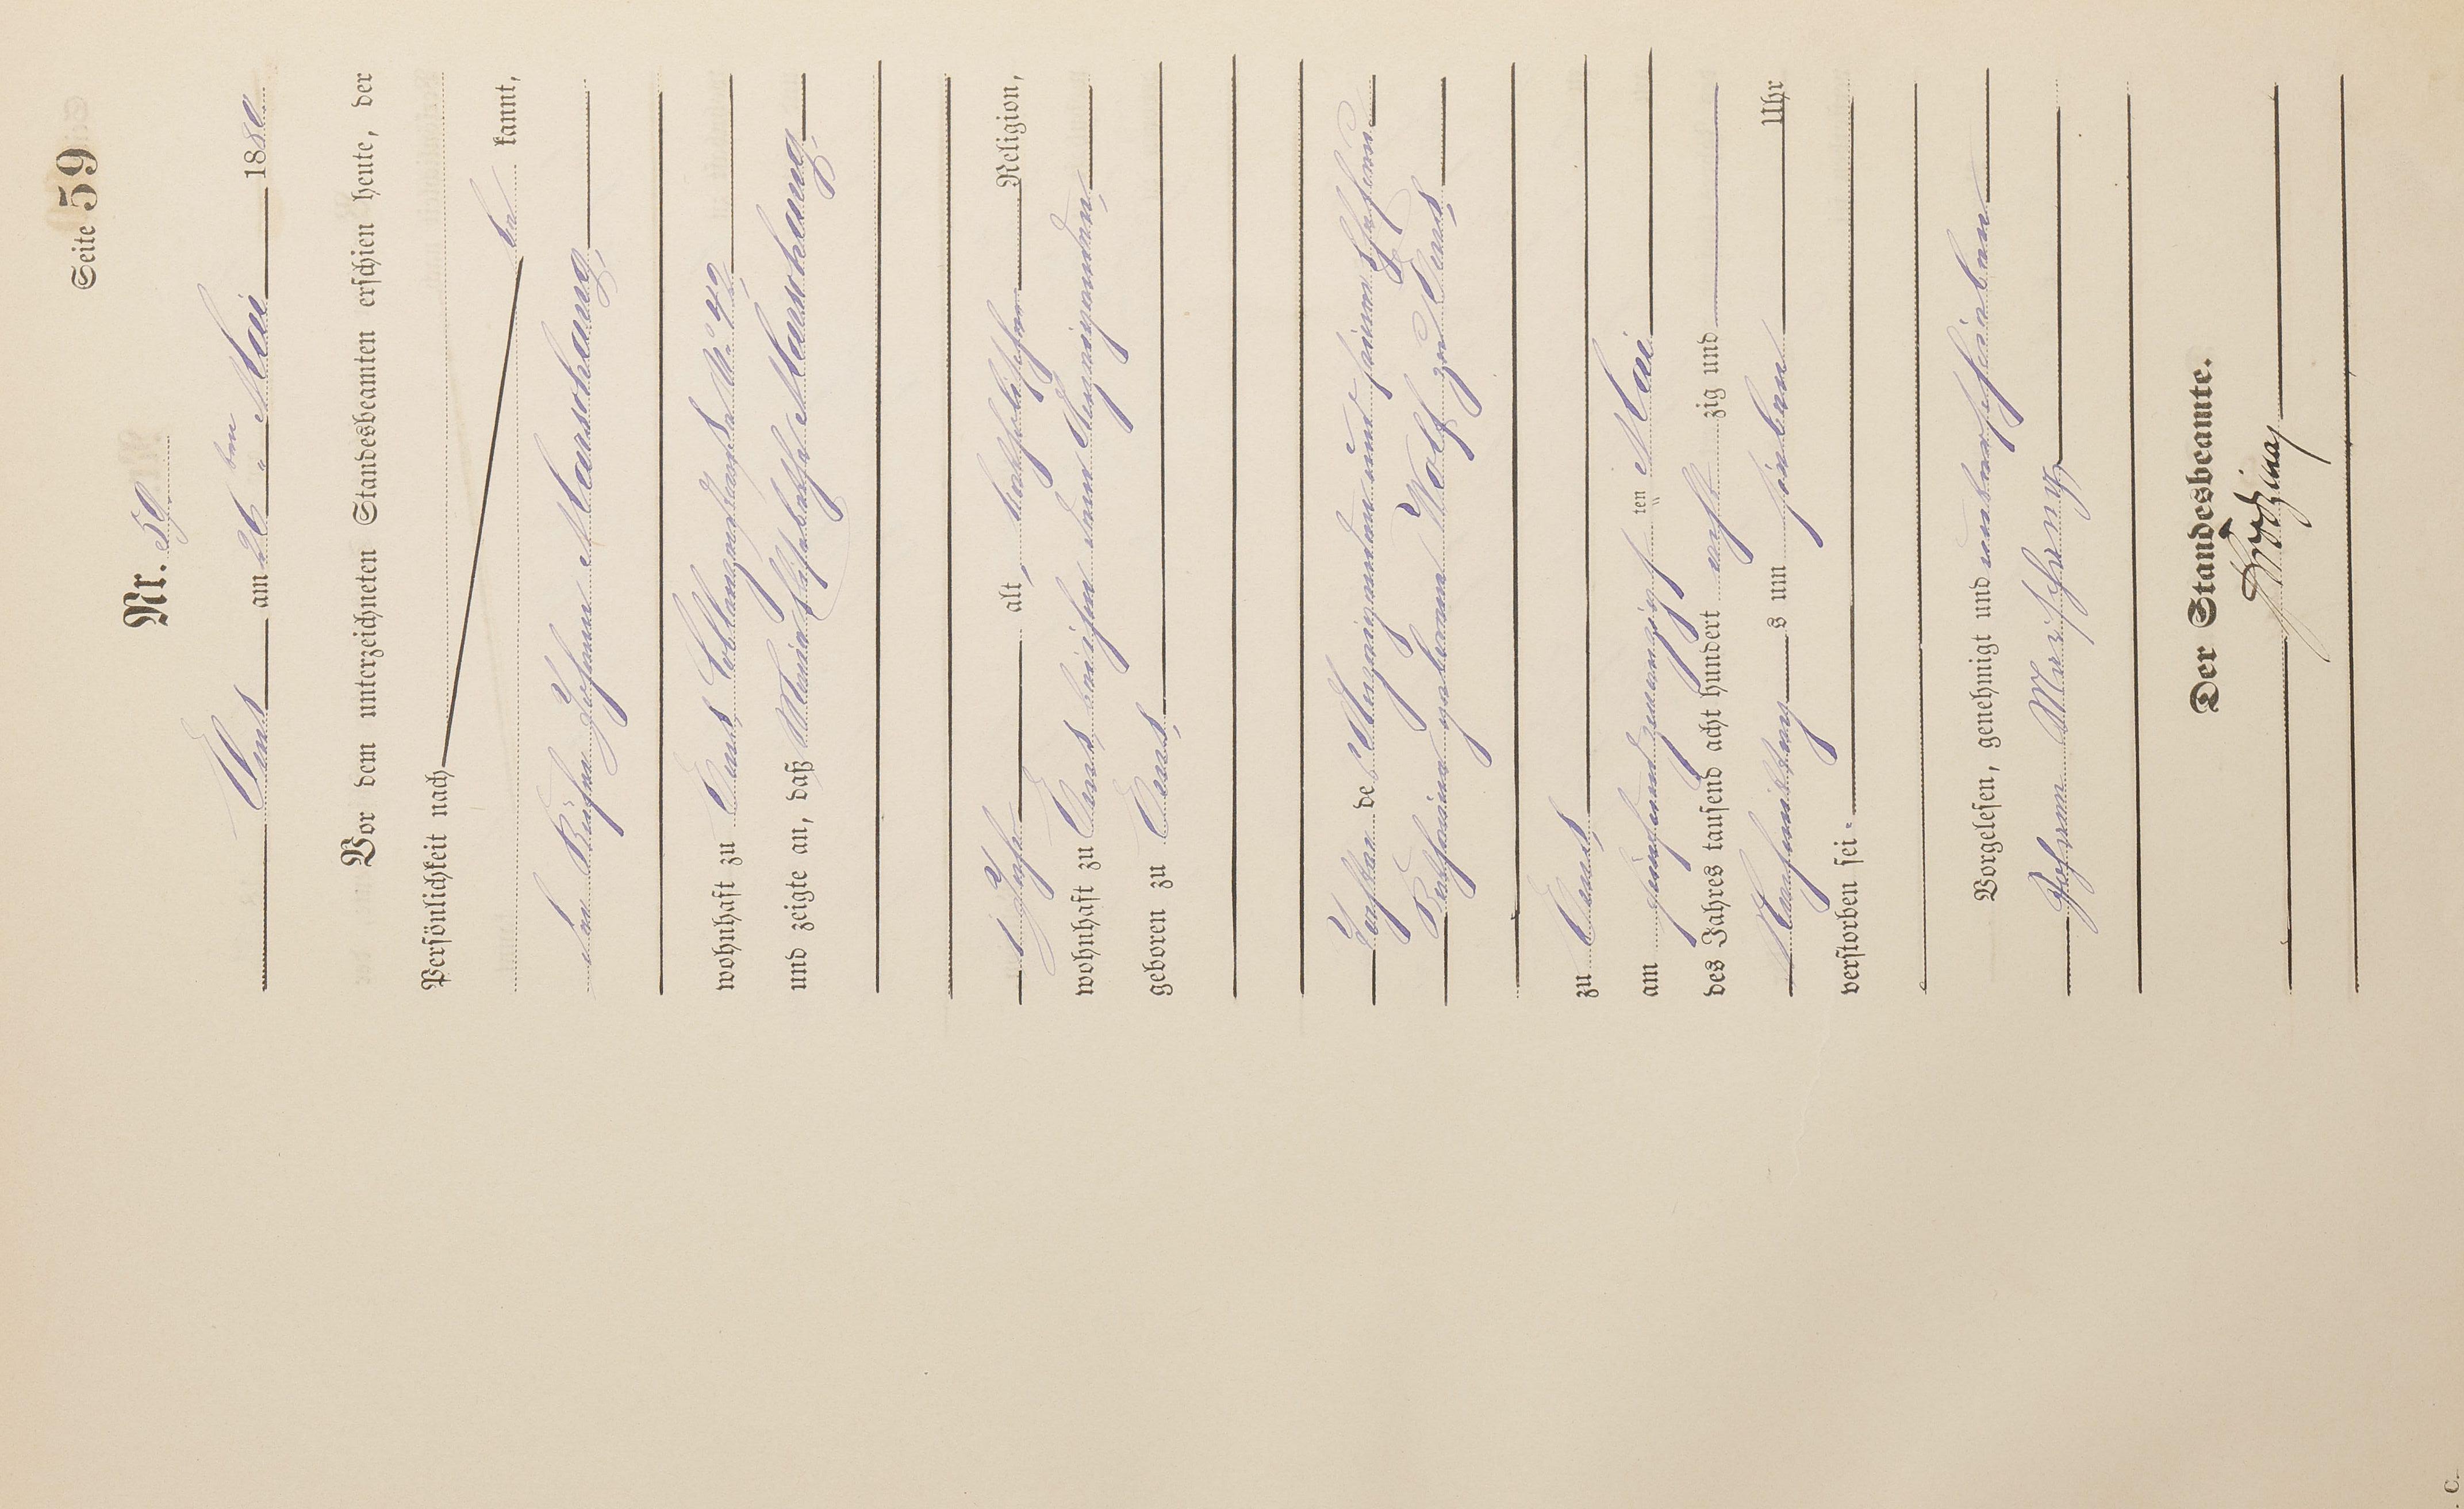 Seite 59
Nr. 59
Ems am 26 ten Mai 1880
Vor dem unterzeichneten Standesbeamten erschien heute, der
Persönlichkeit nach
be kannt,
der Johann Marschang,
wohnhaft zu Ems, Coblenzerstraße No. 42,
und zeigte an, daß Maria Elisabetha Marschang,
1 Jahr alt, katholischer Religion,
wohnhaft zu Ems bei ihrem dem Anzeigenden,
geboren zu Ems,
Tochter des Anzeigenden und seiner Ehefrau
Katharina geborene Wolf zu Ems,
zu Ems,
am fünfundzwanzigsten Mai
des Jahres tausend acht hundert acht zig und
Nachmittags um sieben Uhr
verstorben sei.
Vorgelesen, genehmigt und unterschrieben
Johann Marschang
Der Standesbeamte.